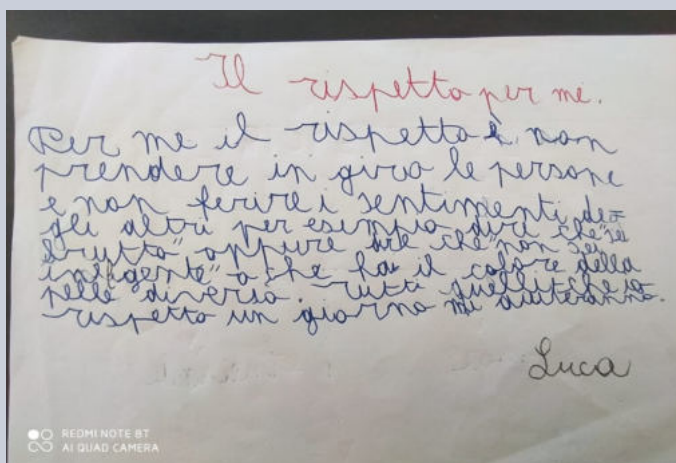 Il rispetto per me.
Per me il rispetto è non
prendere in giro le persone
e non ferire i sentimenti de=
gli altri per esempio dire che "sei
brutto" oppure dire che "non sei
inteligente" o che hai il colore della
pelle diverso. Tutti quelli che io
rispetto un giorno mi aiuteranno.
Luca
REDMI NOTE 8T
AI QUAD CAMERA